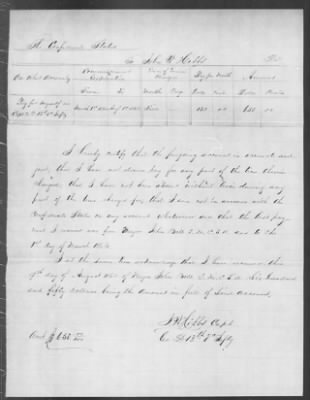 The Confederate States
To John W Hibbs Dr
On What Account Commencement & Expiration Term of Service Charged Pay per Month Amount
From To Months Days Dolls Cents Dolls Cents
Pay for myself as
Capt Co D 13th Va Infty
I hereby certify that the foregoing account is accurate and
just, that I have not drawn pay for any part of the time therein
charged, that I have not been absent without leave during any
part of the time charged for, that I am not in arrears with the
Confederate States on any account whatsoever and that the last pay
I received was from Major John Bell Q.M. C.S.A. and to the
1st day of March 186
I at the same time acknowledge that I have received this
day of August 186 of Major John Bell Q.M. C.S.A. Six hundred
and fifty dollars being the amount in full of said account.
J W Hibbs Capt
Co D 13th Va Infty
Amt $650